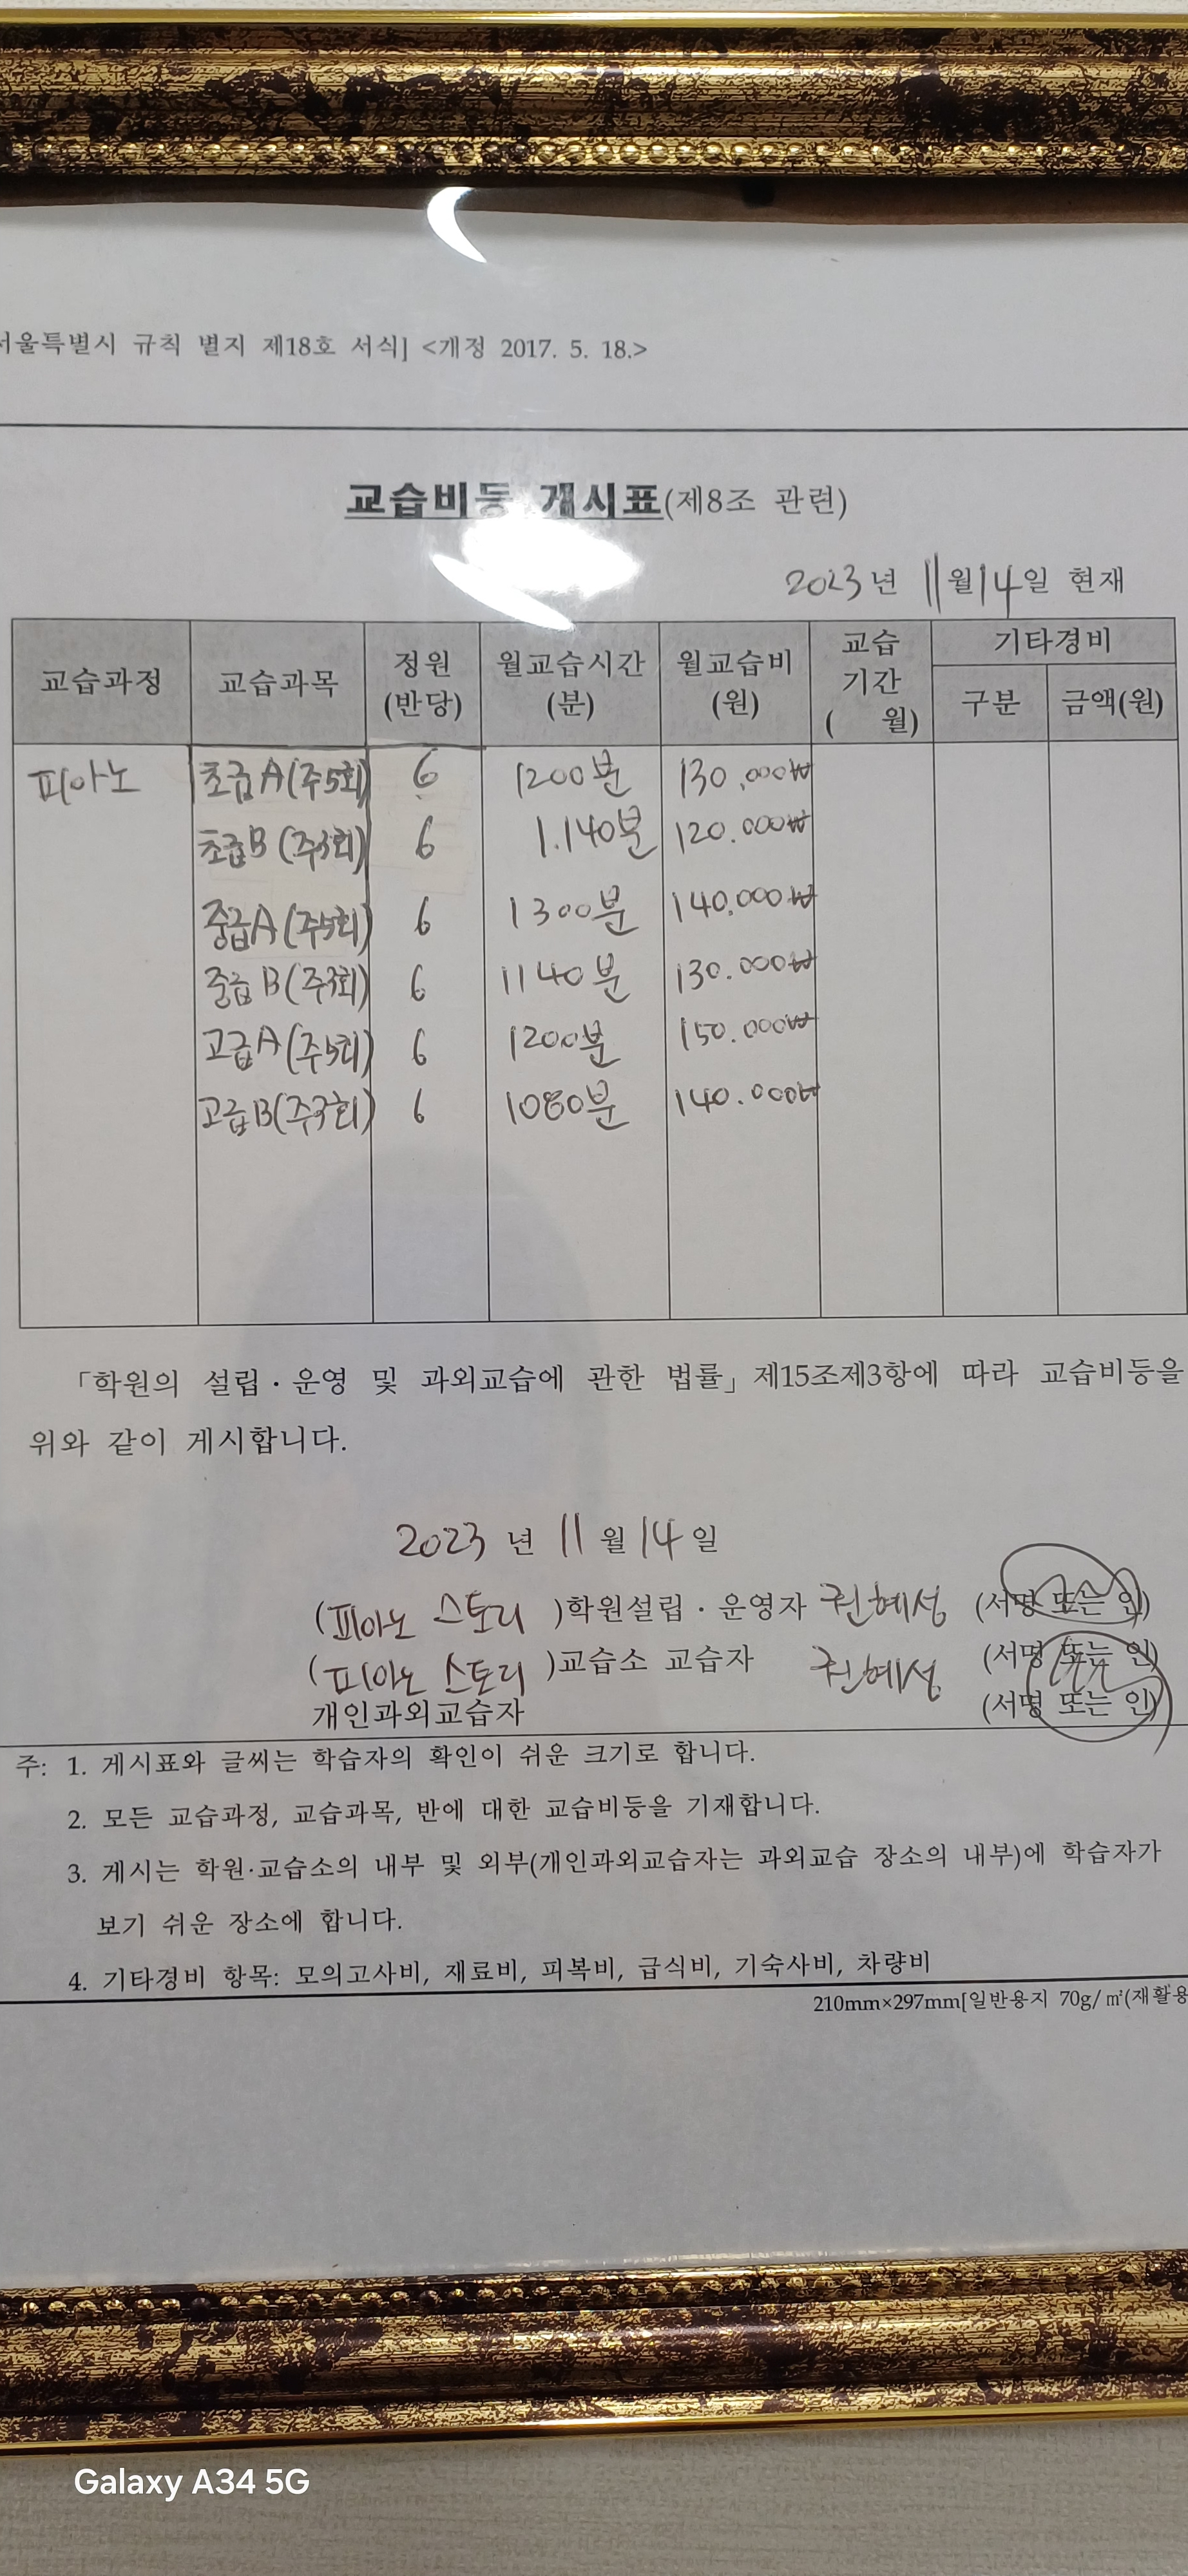 서울특별시 규칙 별지 제18호 서식] <개정 2017. 5. 18.>
교습비등 게시표(제8조 관련)
2023년 11월 14일 현재
교습과정 교습과목 정원(반당) 월교습시간(분) 월교습비(원) 교습기간( 월) 기타경비
구분 금액(원)
피아노 초급A(주5회) 6 1200분 130,000₩
초급B (주3회) 6 1.140분 120.000₩
중급A(주5회) 6 1300분 140,000₩
중급B(주3회) 6 1140분 130.000₩
고급A(주5회) 6 1200분 150.000₩
고급B(주3회) 6 1080분 140.000₩
「학원의 설립·운영 및 과외교습에 관한 법률」제15조제3항에 따라 교습비등을
위와 같이 게시합니다.
2023 년 11 월 14 일
(피아노 스토리 )학원설립·운영자 권혜성 (서명 또는 인)
(피아노 스토리 )교습소 교습자 권혜성 (서명 또는 인)
개인과외교습자 (서명 또는 인)
주: 1. 게시표와 글씨는 학습자의 확인이 쉬운 크기로 합니다.
2. 모든 교습과정, 교습과목, 반에 대한 교습비등을 기재합니다.
3. 게시는 학원·교습소의 내부 및 외부(개인과외교습자는 과외교습 장소의 내부)에 학습자가
보기 쉬운 장소에 합니다.
4. 기타경비 항목: 모의고사비, 재료비, 피복비, 급식비, 기숙사비, 차량비
210mm×297mm[일반용지 70g/㎡(재활용
Galaxy A34 5G